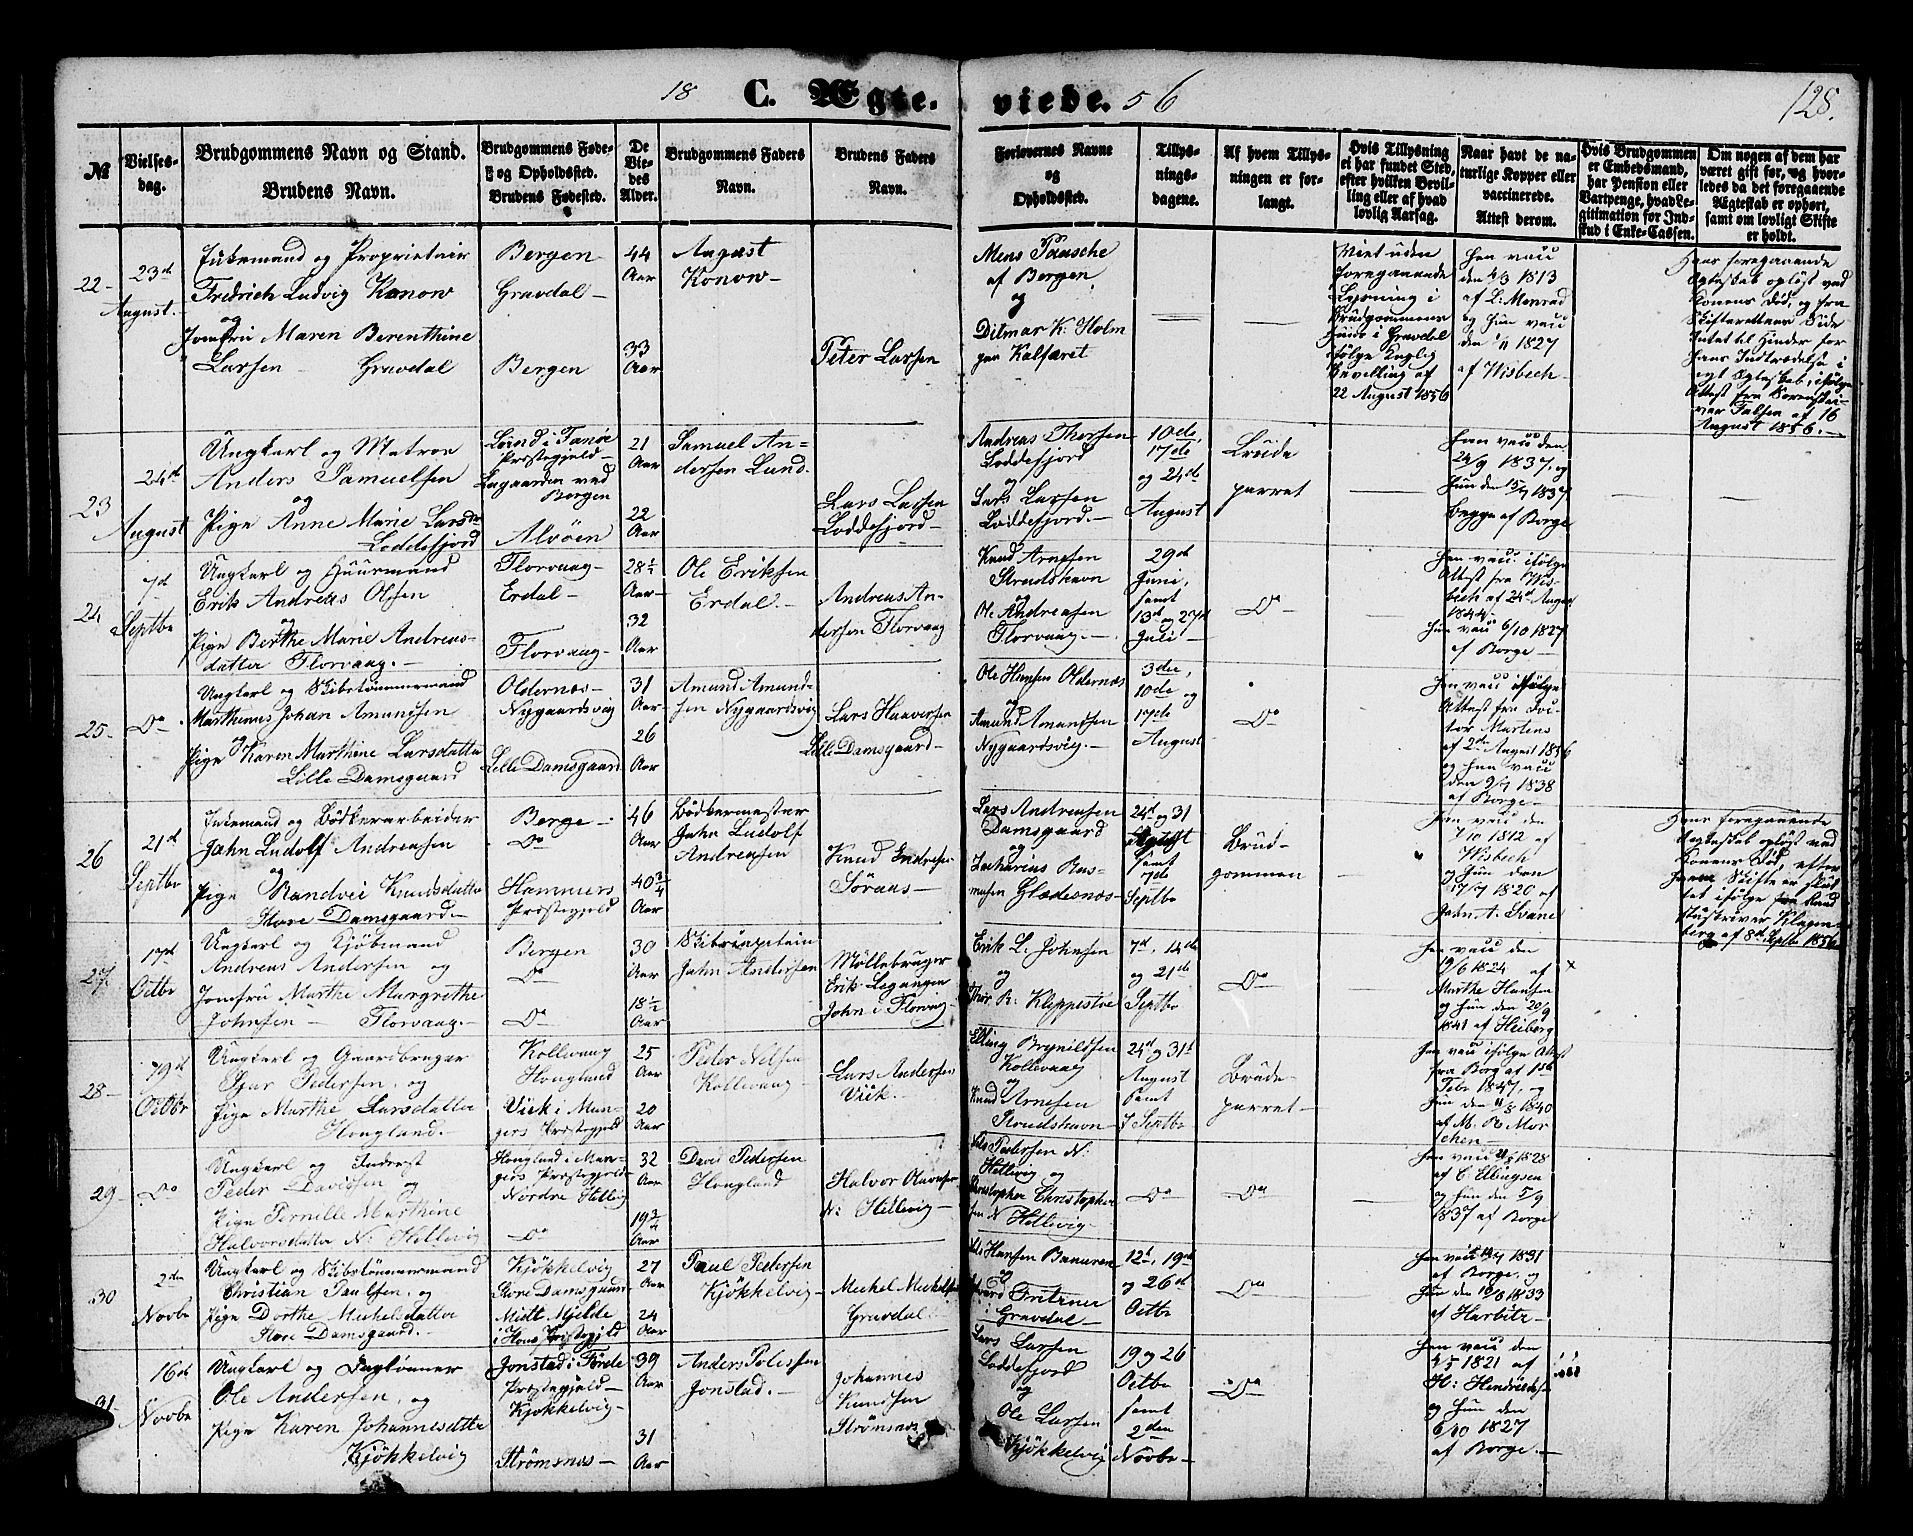 18 C. Ægteviede. 56
128.
№
Vielsesdag.
Brudgommens Navn og Stand.
Brudens Navn.
Brudgommens Fødeog Opholdssted.
Brudens Fødested.
De Viedes Alder.
Brudgommens Faders Navn.
Brudens Faders Navn.
Forlovernes Navne og Opholdssted.
Tillysningsdagene.
Af hvem Tillysningen er forlangt.
Hvis Tillysning ei har fundet Sted, efter hvilken Bevilling eller af hvad lovlig Aarsag.
Naar havt de naturlige Kopper eller vaccinerede. Attest derom.
Hvis Brudgommen er Embedsmand, har Pension eller Vartpenge, hvad Legitimation for Indskud i Enke-Cassen.
Om nogen af dem har været gift før, og hvorledes da det foregaaende Ægteskab er ophørt, samt om lovligt Skifte er holdt.
22-
23d August.
Enkemand og Proprietair
Fredrich Ludvig Konow
og
Jomfru Maren Berenthine
Larsen - Gravdal
Bergen
Gravdal -
Bergen
44 Aar
33 Aar
August Konow-
Peter Larsen
Mens Pausche
af Bergen
og
Ditmar K: Holm
gen Kalfaret
Viet uden
foregaaende
Lysning i
Brudgommens
Huus i Gravdal
ifølge Kuglig
Bevilling af
22 August 1856
Han vacc
den 4/3 1813
af L: Monrad
og Hun vacc
1827
af Wisbech-
Hans foregaaende
Egteskab opløst ved
Konens Død, og fra
Skifterettens Side
Intet til Hinder for
Hans Indtrædelse i
nyt Egteskab, ifølge
Attest fra Sorenskriver
Falsen af 16
August 1856.-
23
24d August
Ungkarl og Matros
Anders Samuelsen
og
Pige Anne Marie Larsdtr
Loddefjord
Lund i Fanøe
Præstegjeld-
Laxaarden ved
Bergen
Alvøen
21 Aar
22 Aar
Samuel Andersen
Lund.
Lars Larsen
Loddefjord-
Andreas Thorsen
Loddefjord
og
Lars Larsen
Loddefjord.-
10de,
17de
og 24de
August
Brude
parret
Han vacc den
24/9 1837, og
Hun den 15/9 1837
begge af Borge
24
7d Septbr
Ungkarl og Huusmand
Erik Andreas Olsen
og
Pige Berthe Marie Andreasdatter
Florvaag.-
Florvaag-
Erdal-
Florvaag-
28½ Aar-
32 Aar
Ole Eriksen
Erdal.-
Andreas Andersen
Florvaag
Knud Arnesen
Strudshavn
og
Ole Andreasen
Florvaag.-
29de
Juni,
samt
13de og 27de
Juli-
Do-
Han vacc. ifølge
Attest fra Wisbech
af 24de August
1844.
Hun vacc 6/10 1827
af Borge-
25-
Do-
Ungkarl og Skibstømmermand
Marthinus Johan Amundsen
og
Pige Karen Marthine Larsdatter
Lille Damsgaard
Oldernæs-
Nygaardsvig
Lille Damsgaard
31 Aar-
26 Aar
Amund Amundsen
Nygaardsvig
Lars Haaversen
Lille Damsgaard-
Ole Hansen Oldernæs
og
Amund Amundsen
Nygaardsvig.-
3die,
10de og
17de
August
Do-
Han vacc ifølge
Attest fra Doctor
Martens
af 2de August 1856
og Hun vacc
den 9/7 1838
af Borge-
26
21d Septbr
Enkemand og Bødkerarbeider
Jahn Ludolf Andreasen
og
Pige Randvei Knudsdatter
Store Damsgaard-
Berge-
Do-
Hammers
Præstegjeld
46 Aar
40¾ Aar
Bødkermester
Jahn Ludolf
Andreasen
Knud Endresen
Søraas-
Lars Andreasen
Damsgaard
og
Zacharius Rasmusen
Gladesnæs-
24d og 31
August
samt
7de
Septbr
Brudgommen
Han vacc den
7/10 1812 af
Wisbech
og Hun den
17/7 1820 af
Jahn A. Svane
Hans foregaaende
Egteskab opløst ved
Konens Død, efter
Hvem Skifte er sluttet
ifølge fra Landstuskriver
Klagenberg
af 8d Septbr 1856
27.
17d Octbr
Ungkarl og Kjøbmand
Andreas Andersen og
Jomfru Marthe Margrethe
Johnsen - Florvaag.-
Bergen
Do-
Do-
30 Aar
18½ Aar
Skibscapitain
Jahn Andersen
Møllebruger
Erik Legangen
John i Florvaag-
Erik L. Johnsen
og
Thor R. Kleppestøe
7d, 14de
og 21de
Septbr
Do-
Han vacc den
19/6 1824 af
Marthe Hansen
og Hun den 20/9
1841 af Heiberg
x
28-
19d Octbr
Ungkarl og Gaardbruger
Sjur Pedersen, og
Pige Marthe Larsdatter
Hougland.-
Kollevaag
Hougland
Viik i Mangers
Præstegjeld
25 Aar
20 Aar
Peder Nelsen
Kollevaag
Lars Andersen
Viik.-
Elling Brynildsen
Kollevaag
og
Knud Arnesen
Strudshavn-
24d og 31d
August
samt
7 Septbr
Brudeparret-
Han vacc ifølge Attest
fra Borg af 156
Febr 1847, og
Hun den 11/8 1840
af M. R. Morchen-
29-
Do-
Ungkarl og Inderst
Peder Davidsen og
Pige Pernille Marthine
Halvorsdatter N: Hillevig
Hougland i Mangers
Præstegjeld
Nordre Hillevig
Do-
32 Aar
19¾ Aar
David Pedersen
Hougland
Halvor Olavesen
N: Hillevig-
Nils Pedersen N:
Hillevig og
Christopher Christophersen
N Hillevig-
Do-
Do-
Han vacc 21/8 1828
af C. Ellingsen
og Hun den 5/9
1837 af Borge
30
2den Novbr
Ungkarl og Skibstømmermand
Christian Paulsen, og
Pige Dorthe Michelsdatter
Store Damsgaard.-
Kjøkkelvig
Store Damsgaard
Midt Mjelde
i Hous Præstegjeld
27 Aar
24 Aar
Paul Pedersen
Kjøkkelvig
Michel Michelsen
Gravdal.
Nils Hansen Banuren
og
Fritzner
i Gravdal-
12d, 19de
og 26de
Octbr
Do-
Han vacc 1831
af Borge, og
Hun den 10/8 1833
af Harbitz-
31-
16d Novbr
Ungkarl og Daglønner
Ole Andersen, og
Pige Karen Johannesdtter
Kjøkkelvig
Jonstad i Førde
Præstegjeld-
Kjøkkelvig-
Strømsnes-
39 Aar
31 Aar
Anders Polessen
Jonstad.-
Johannes
Knudsen
Strømsnes
Lars Larsen
Loddefjord
og
Ole Larsen
Kjøkkelvig
19 og 26
Octbr
samt
2den
Novbr-
Do-
Han vacc den
4/5 1821 af
H: Hendriks-
og Hun den
6/10 1827
af Borge.-